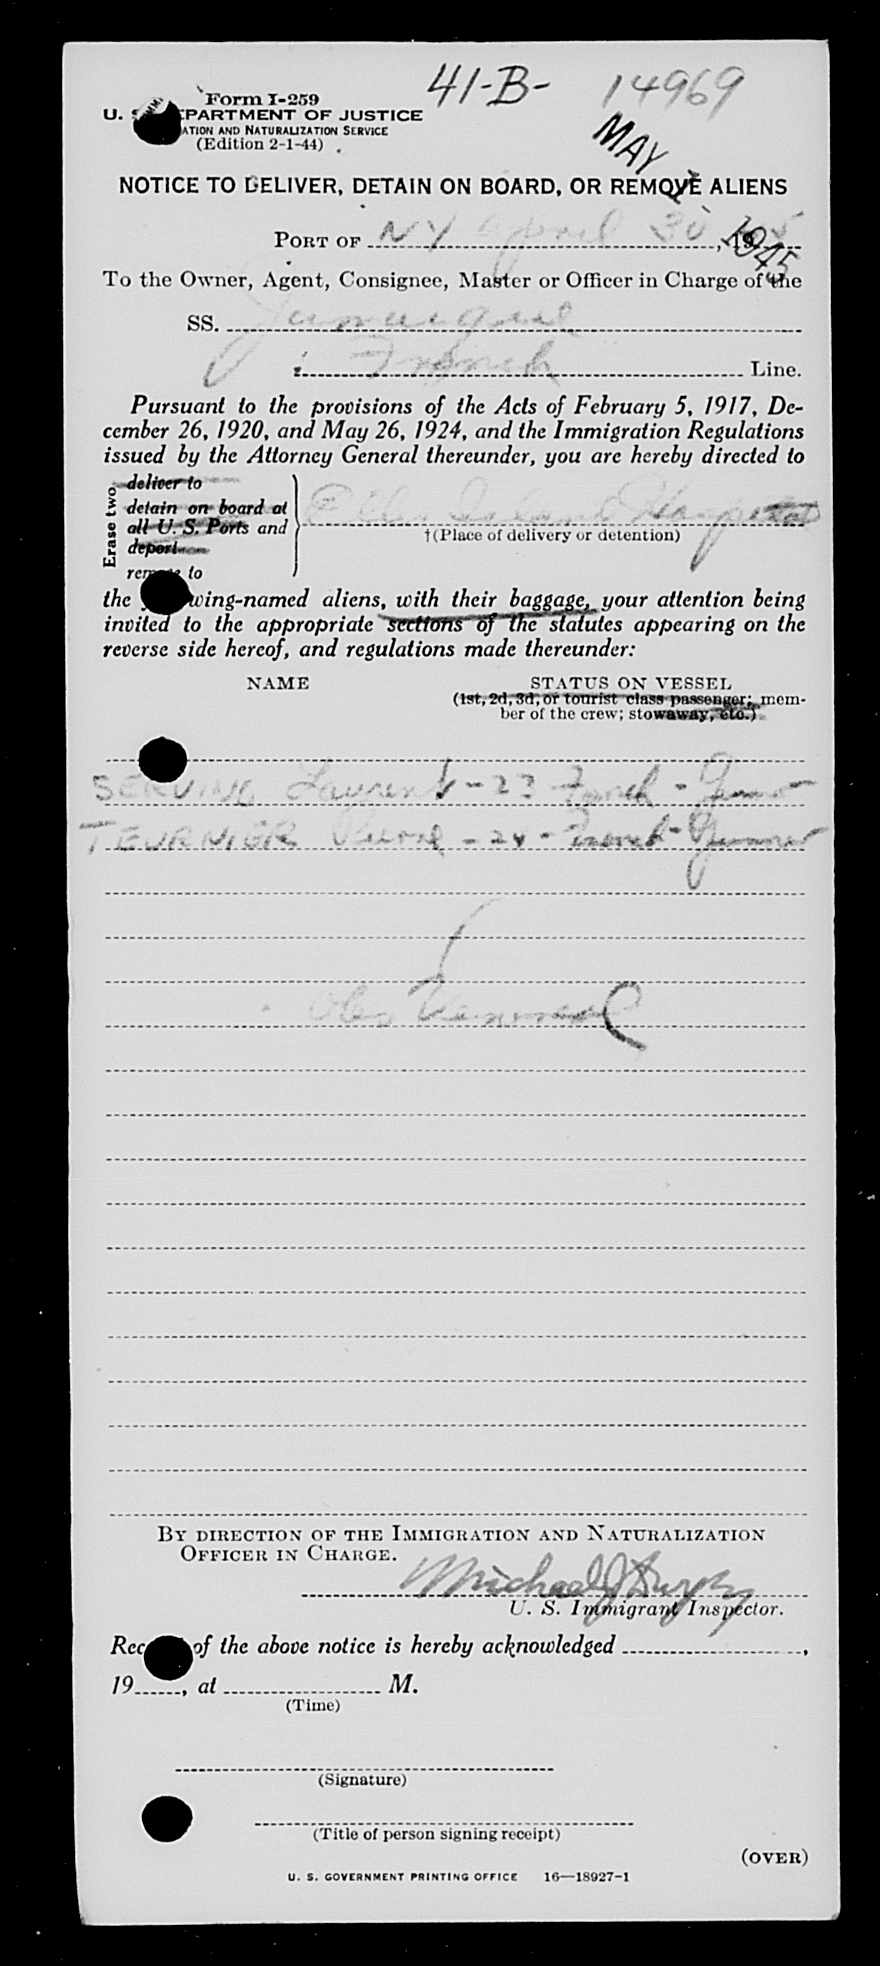 41-B- 14969
Form I-259
U. DEPARTMENT OF JUSTICE
ATION AND NATURALIZATION SERVICE
(Edition 2-1-44)
MAY 1 1945
NOTICE TO DELIVER, DETAIN ON BOARD, OR REMOVE ALIENS
PORT OF NY April 30, 1945
To the Owner, Agent, Consignee, Master or Officer in Charge of the
SS.
French Line.
Pursuant to the provisions of the Acts of February 5, 1917, De-
cember 26, 1920, and May 26, 1924, and the Immigration Regulations
issued by the Attorney General thereunder, you are hereby directed to
Erase two
deliver to
detain on board at
all U. S. Ports and
deport
remove to
Ellis Island Hospital
†(Place of delivery or detention)
the wing-named aliens, with their baggage, your attention being
invited to the appropriate sections of the statutes appearing on the
reverse side hereof, and regulations made thereunder:
NAME STATUS ON VESSEL
(1st, 2d, 3d, or tourist class passenger; mem-
ber of the crew; stowaway, etc.)
SERVING Laurent - 23 French - Gunner
TEURNIER Pierre - 24 - French - Gunner
BY DIRECTION OF THE IMMIGRATION AND NATURALIZATION
OFFICER IN CHARGE.
Michael J Murphy
U. S. Immigrant Inspector.
Rec of the above notice is hereby acknowledged ,
19 , at M.
(Time)
(Signature)
(Title of person signing receipt)
(OVER)
U. S. GOVERNMENT PRINTING OFFICE 16—18927-1